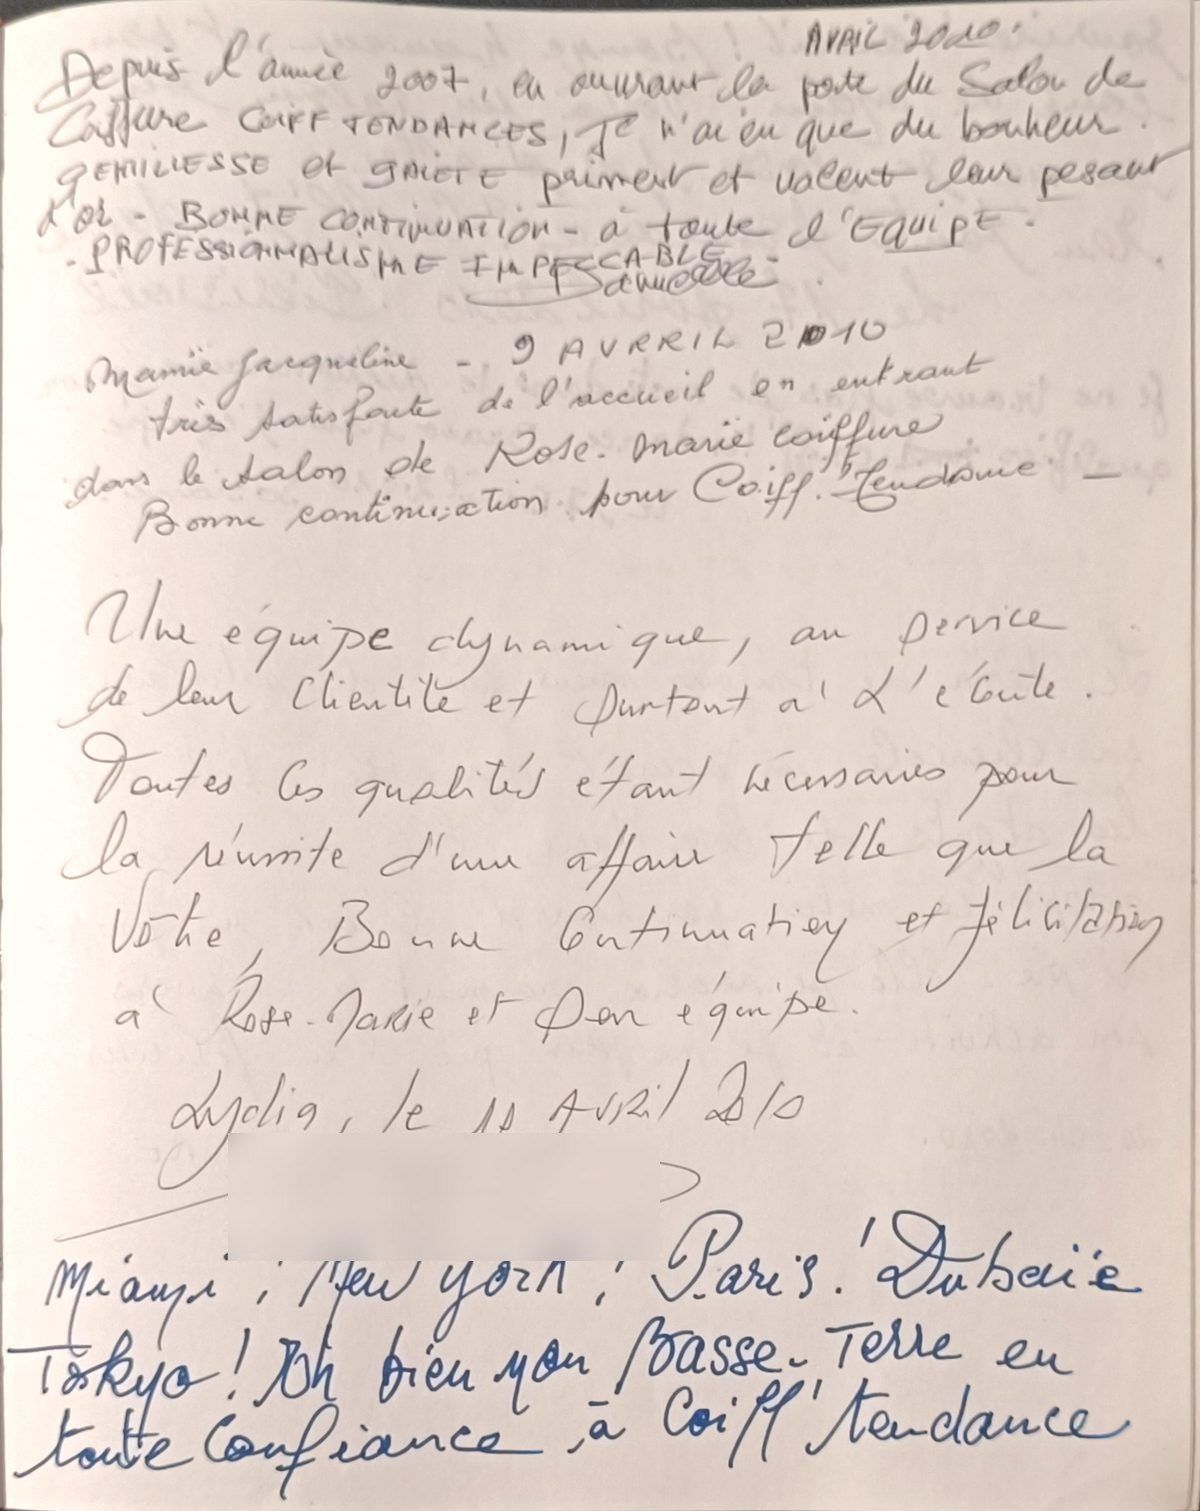 AVRIL 2010.
Depuis l'année 2007, en ouvrant la porte du Salon de
Coiffure COIFF TENDANCES, Je n'ai eu que du bonheur.
GENTILLESSE et GAIETE priment et valent leur pesant
d'or - BONNE CONTINUATION - à toute l'EQUIPE.
- PROFESSIONNALISME IMPECCABLE -
Mamie Jacqueline - 9 AVRRIL 2010
très satisfaite de l'accueil en entrant
dans le salon de Rose-Marie coiffure
Bonne continuation pour Coiff.'Tendance -
Une équipe dynamique, au service
de leur Clientèle et surtout à L'écoute.
Toutes ces qualités étant nécessaires pour
la réussite d'une affaire telle que la
Vôtre, Bonne Continuation et félicitation
à Rose-Marie et son équipe.
Lydia, le 10 AVRil 2010
Miami ; New York ; Paris ! Dubaïe
Tokyo ! Oh bien non Basse-Terre en
toute Confiance à Coiff'tendance